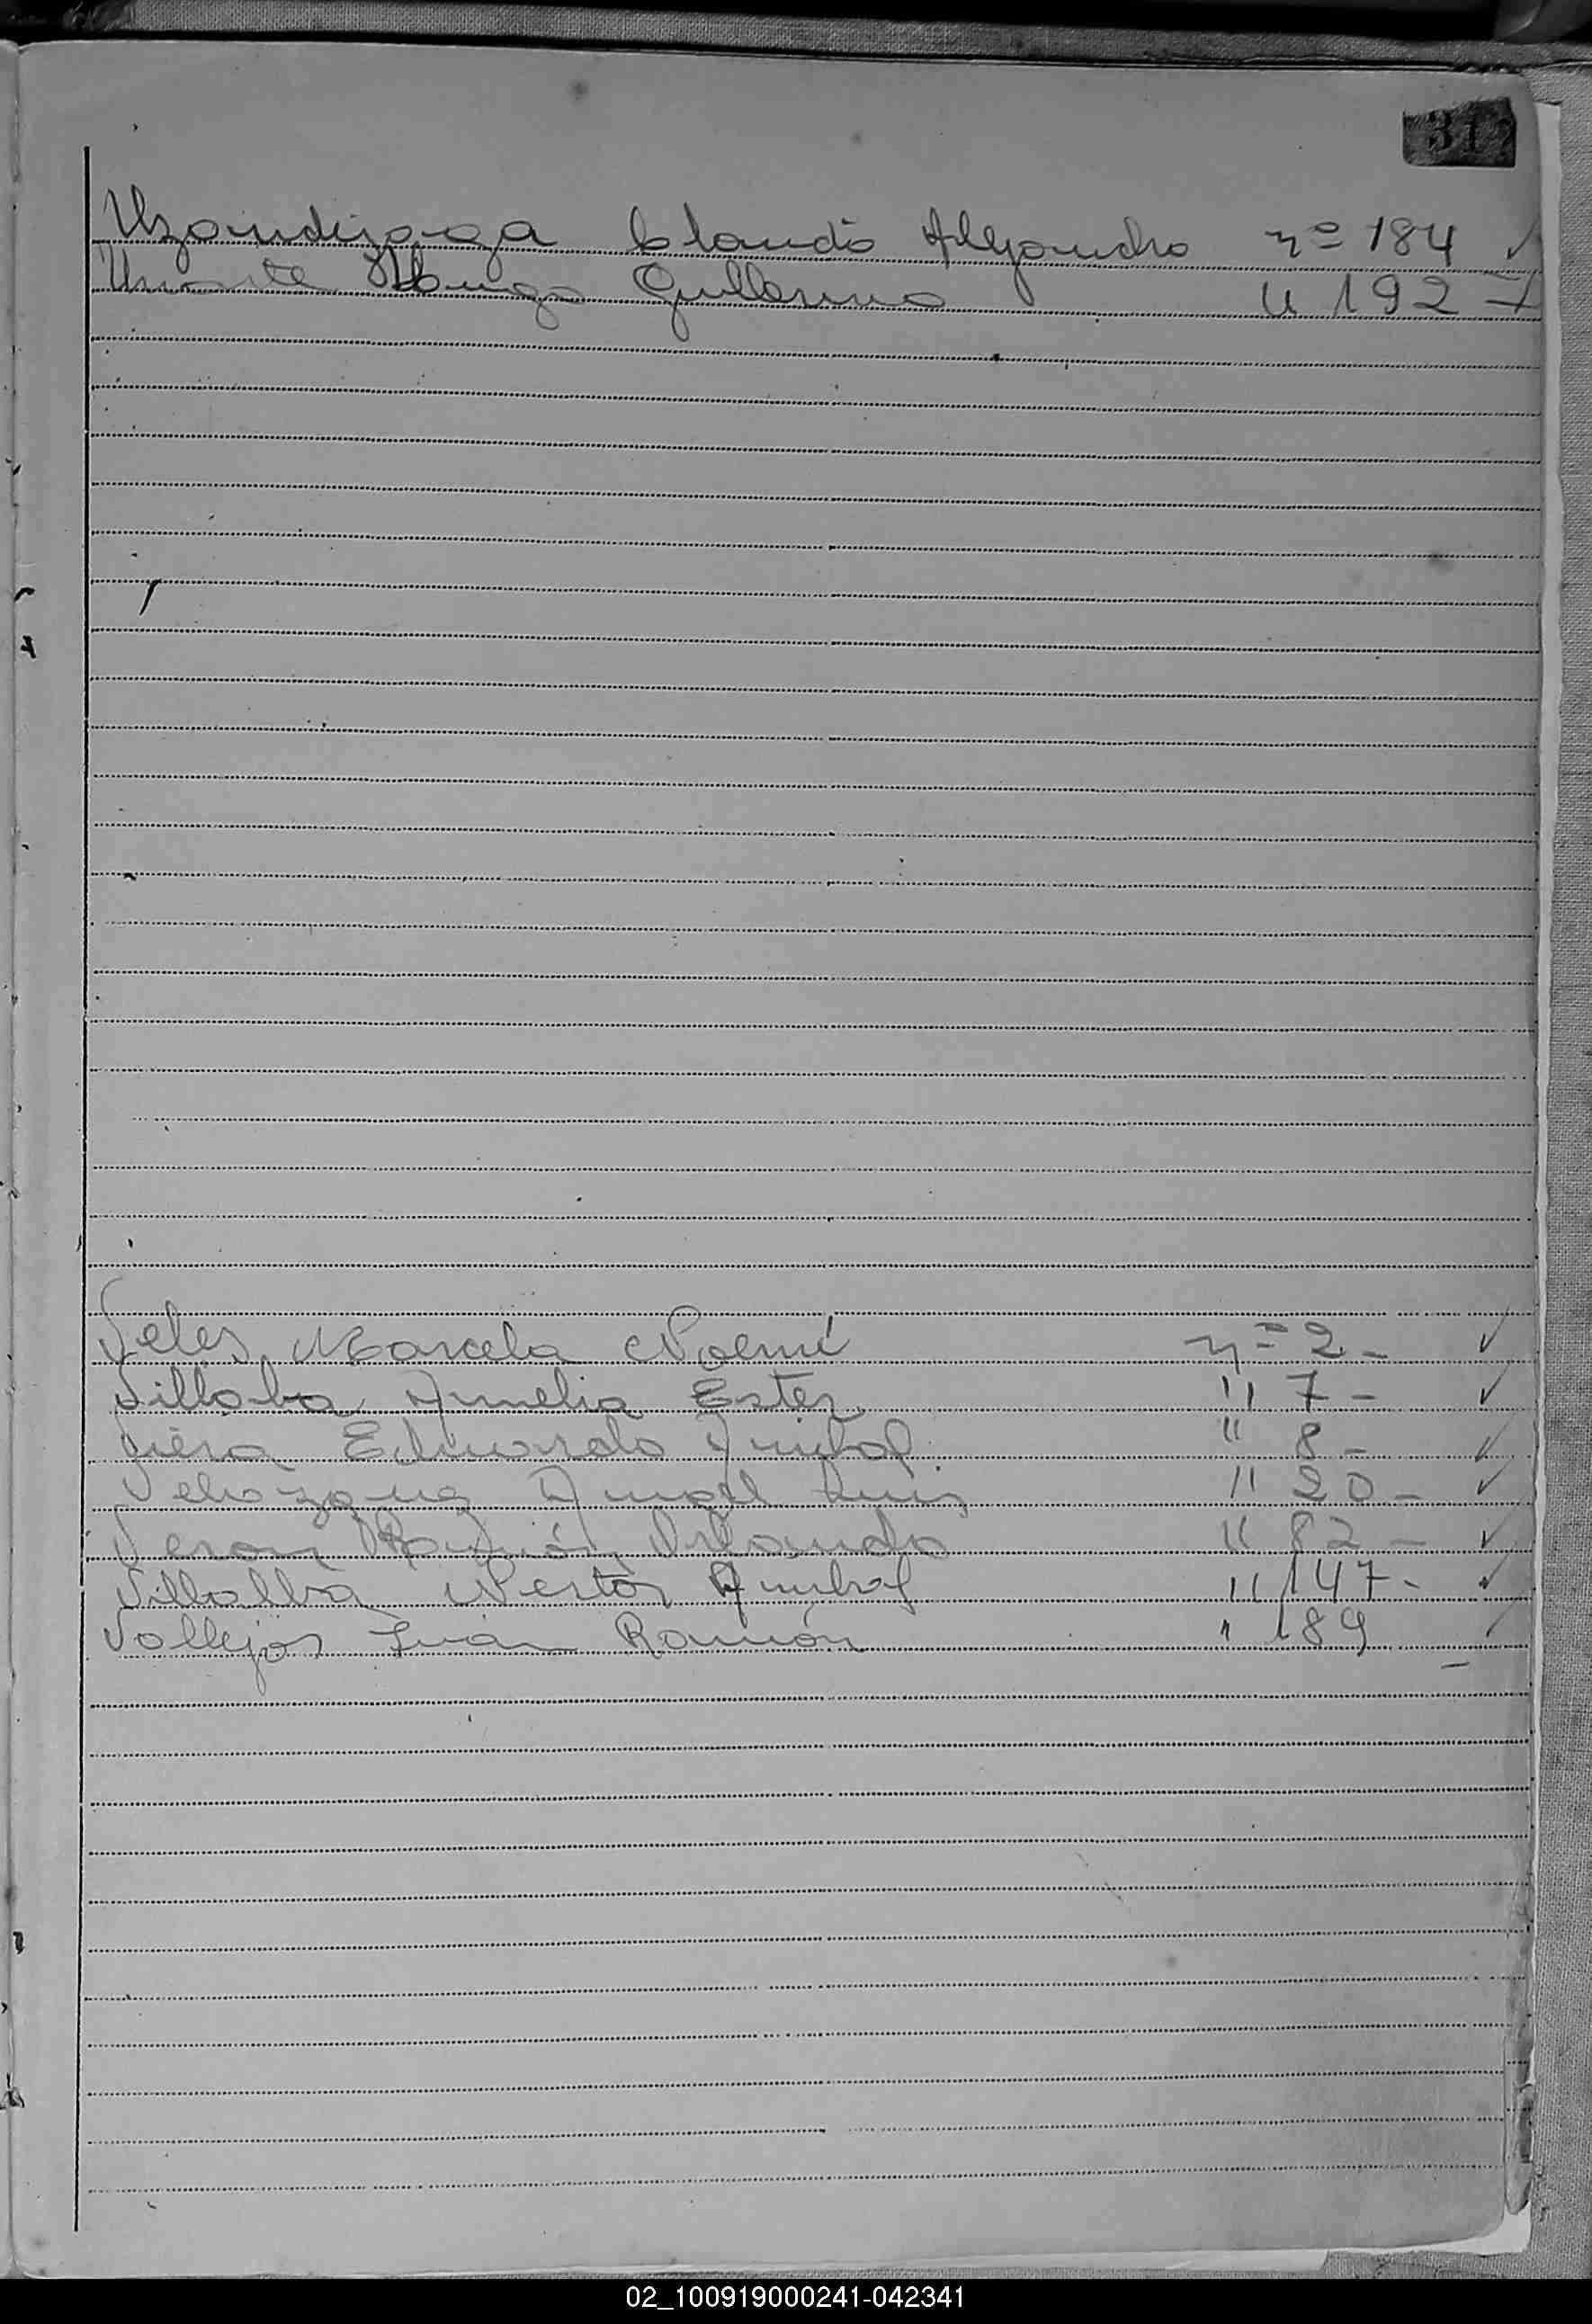 317
Uzandizaga Claudio Alejandro nº 184 ✓
Uriarte Hugo Guillermo " 192 -
Veles Marcela Noemí nº 2 - ✓
Villalba Amelia Ester " 7 - ✓
Viera Eduardo Anibal " 8 - ✓
Velozquez Luis " 20 - ✓
Veron Ramón Orlando " 82 - ✓
Villalba Nestor Anibal " 147 - ✓
Vallejos Juan Ramón " 189 ✓
02_100919000241-042341